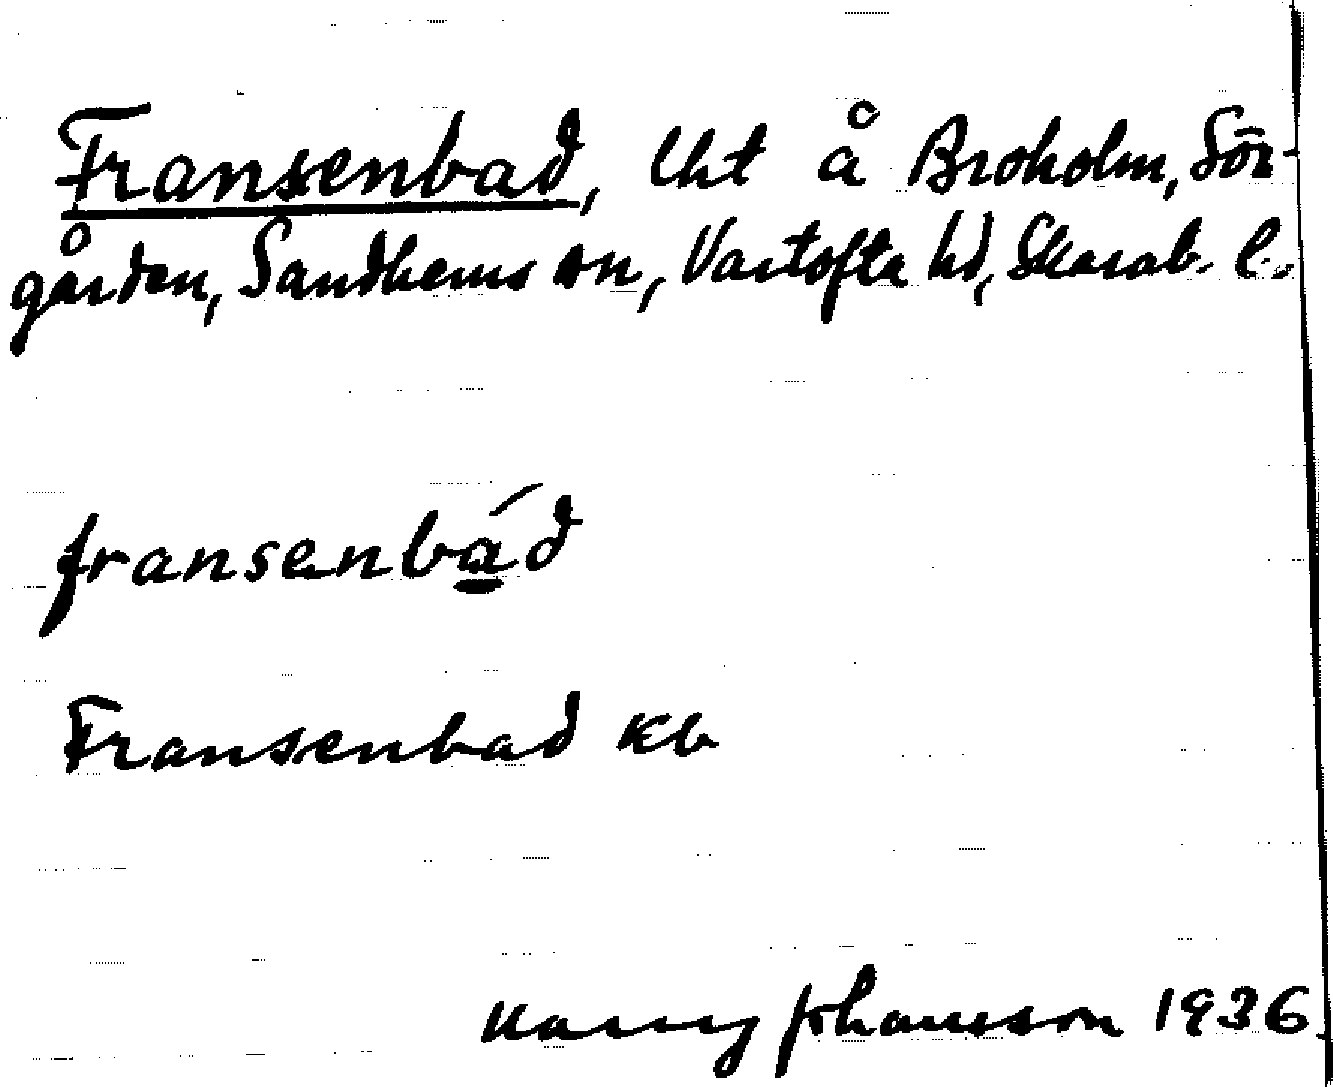 Fransenbad, lht å Broholm, Sör-
gården, Sandhems sn, Vartofta hd, Skarab. l.
fransenbá̱d
Fransenbad Kb
Harry Johansson 1936